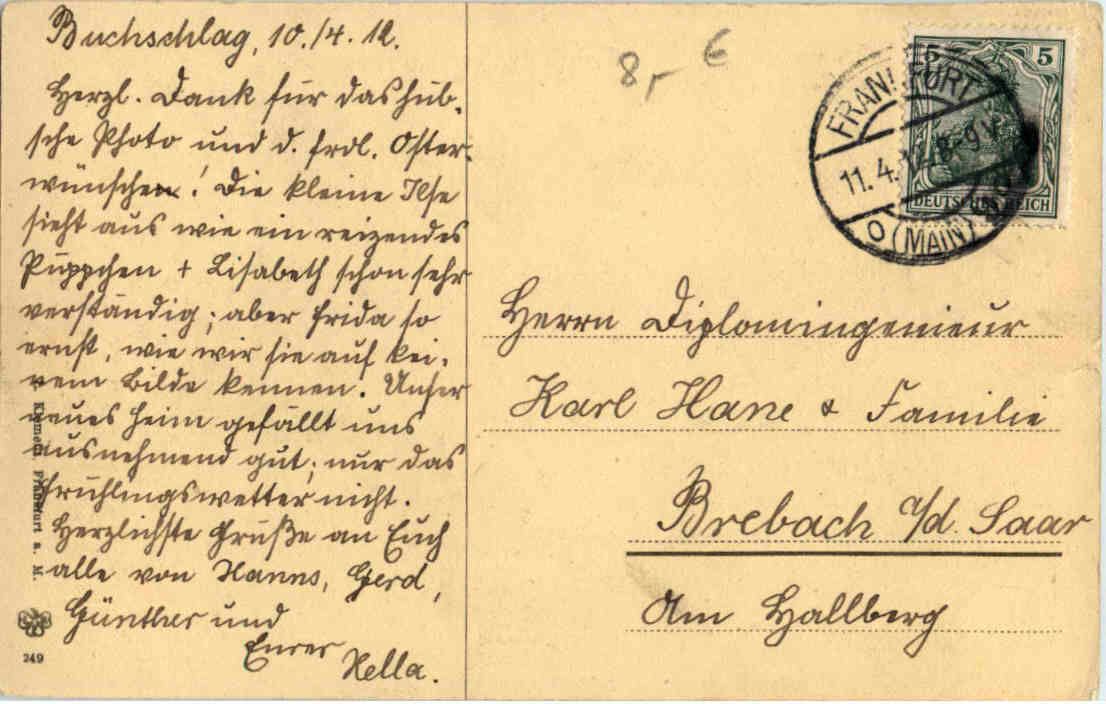 Buchschlag, 10./4. 12.
Herzl. Dank für das hüb-
sche Photo und d. frdl. Oster-
wünsche! Die kleine Ilse
sieht aus wie ein reizendes
Püppchen + Lisabeth schon sehr
verständig; aber Frida so
ernst, wie wir sie auf kei-
nem Bilde kennen. Unser
neues Heim gefällt uns
ausnehmend gut; nur das
Frühlingswetter nicht.
Herzlichste Grüße an Euch
alle von Hanns, Gerd,
Günther und
Eurer
Hella.
Frankfurt a. M.
249
8,- €
5
5
DEUTSCHES REICH
FRANKFURT
11.4.12. 8-9 V
(MAIN)
Herrn Diplomingenieur
Karl Hane & Familie
Brebach a/d. Saar
Am Hallberg